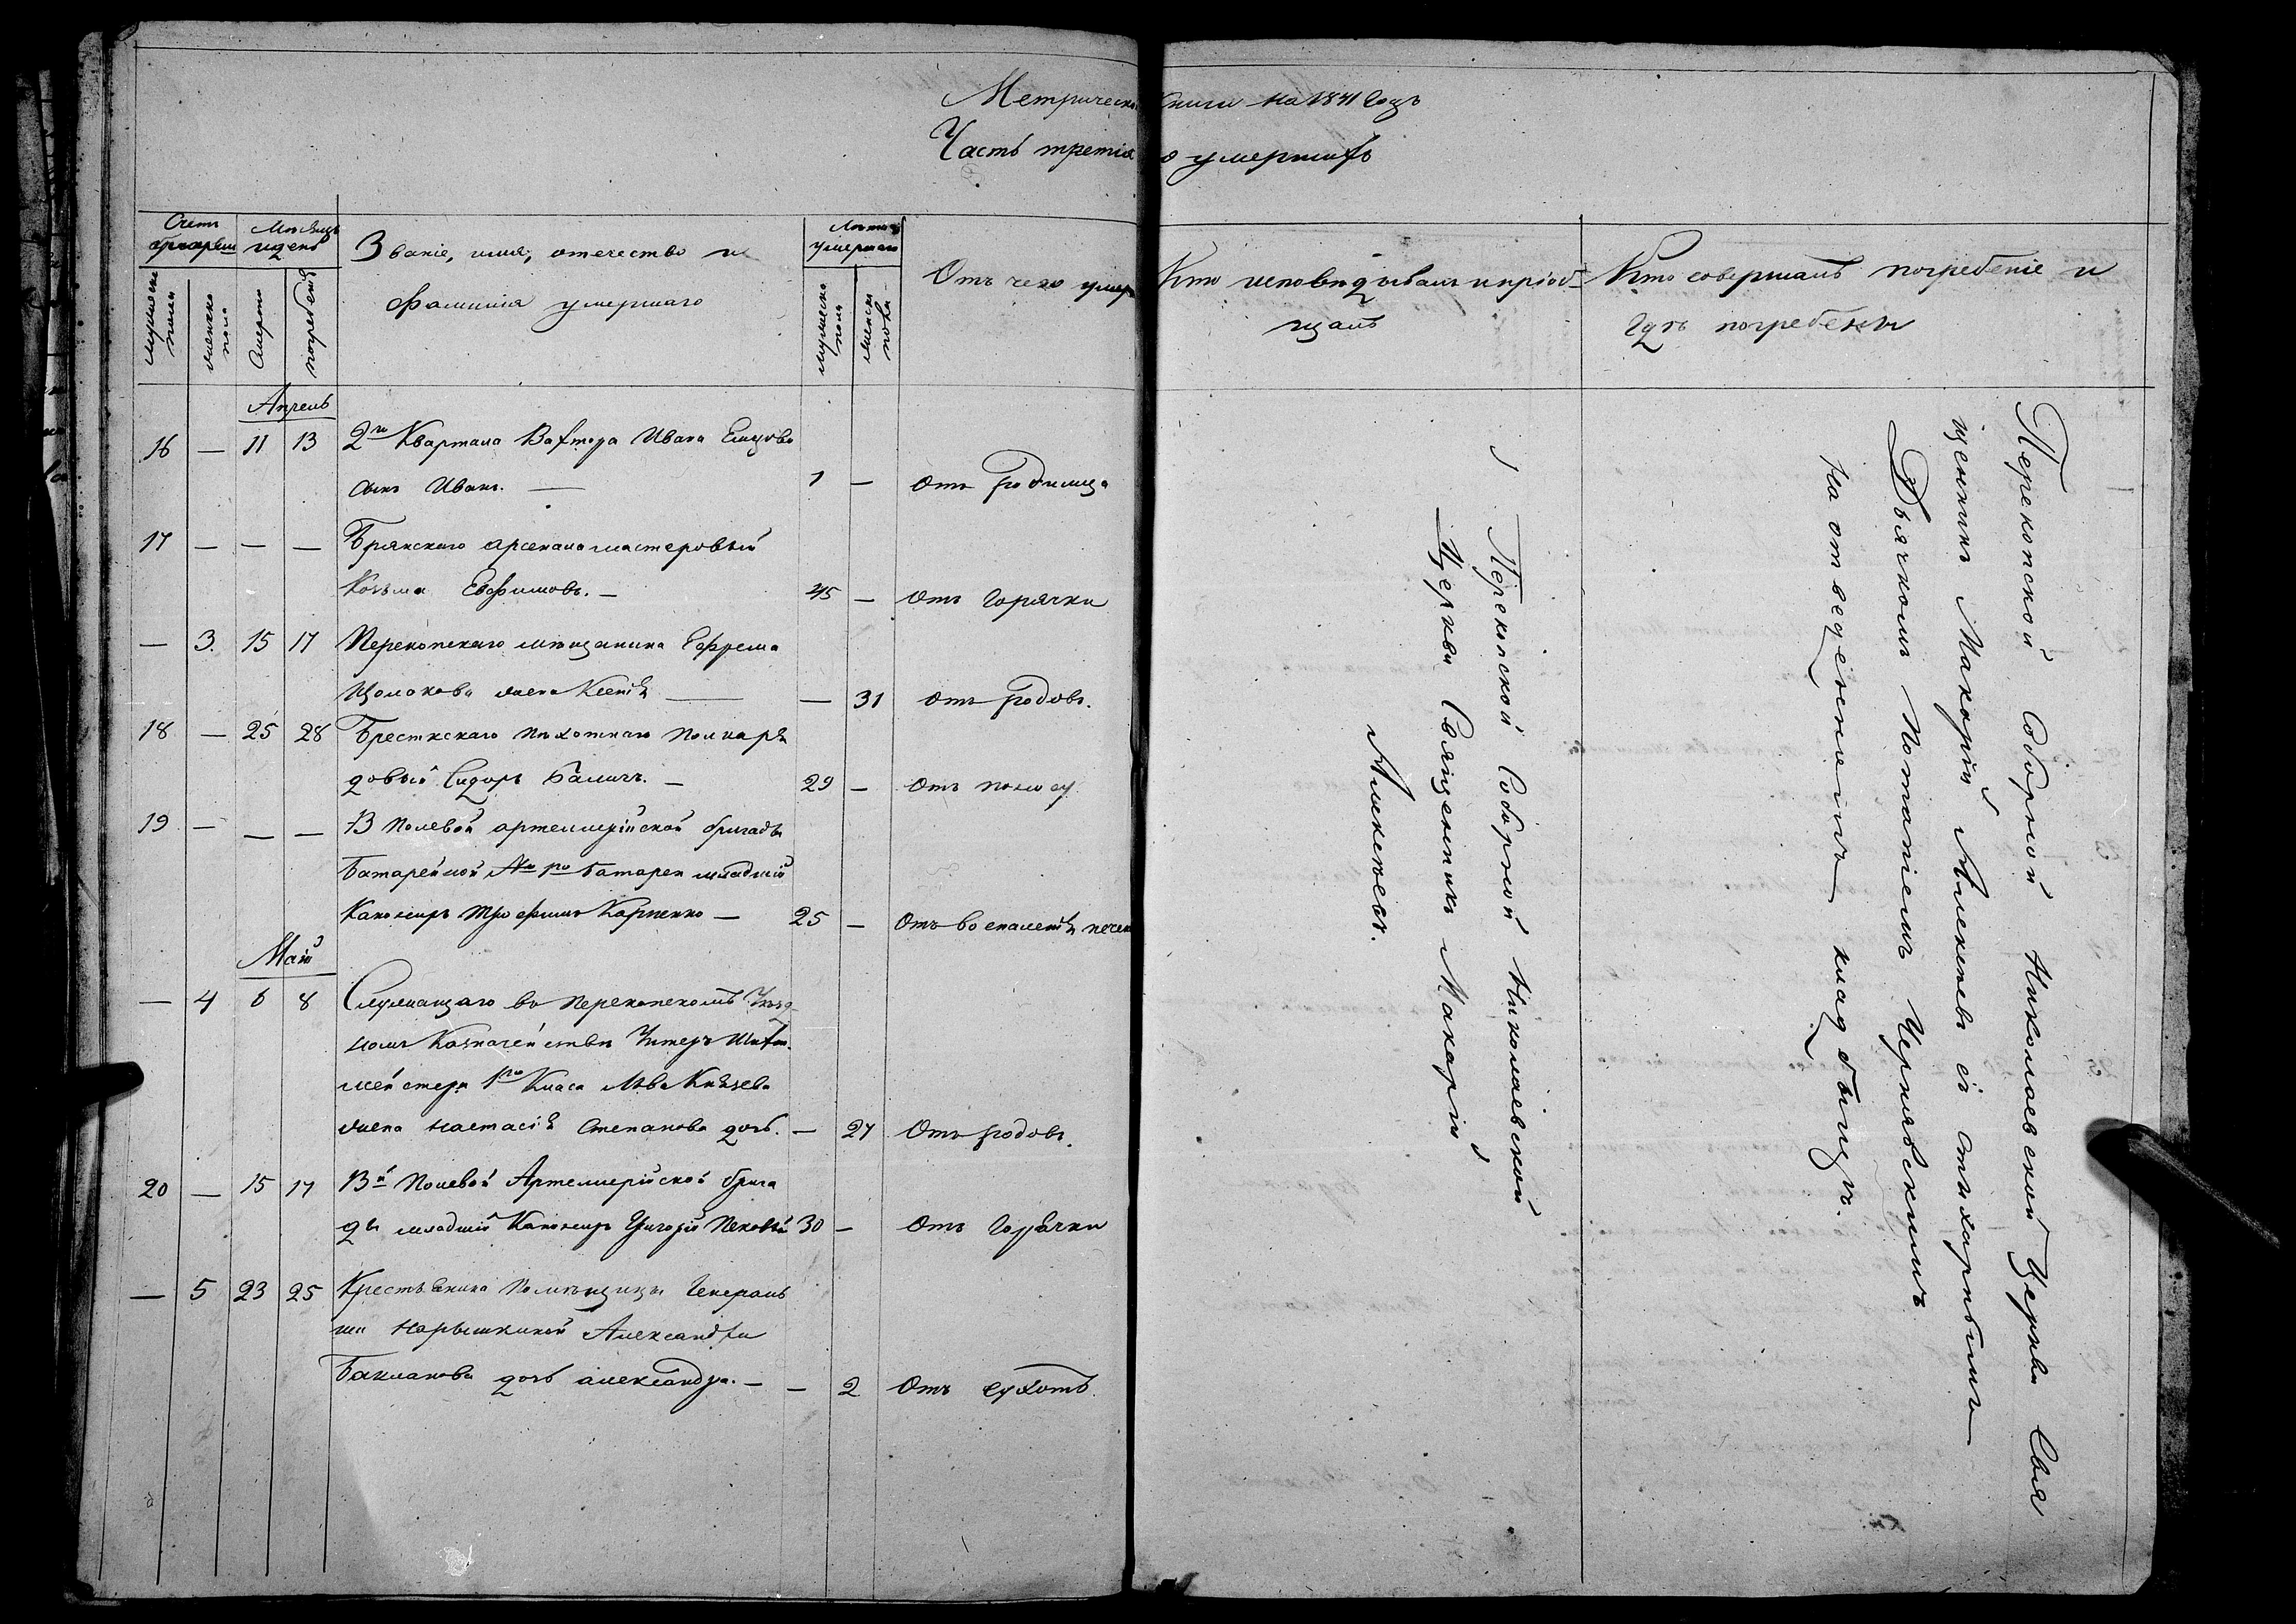 Метрической Книги на 1841 Годъ
Часть третія о умершихъ
Счетъ умершихъ
Мѣсяцъ и день
Званіе, имя, отечество и
фамилія умершаго
Лѣта умершаго
Отъ чего умеръ
Кто исповѣдывалъ и пріоб-
щалъ
Кто совершалъ погребеніе и
гдѣ погребены
мужеска пола
женска пола
Смерти
погребенія
мужеска пола
женска пола
Апрель
16 — 11 13 2го Квартала Вахтера Ивана
сынъ Иванъ. — 1 — Отъ родимца
17 — — — Брянскаго арсенала мастеровый
Козьма Евфимовъ. — 45 — Отъ Горячки
— 3. 15 17 Перекопскаго мѣщанина Ефрема
жена Ксенія — — 31 отъ родовъ.
18 — 25 28 Бресткскаго пѣхотнаго полка ря
довый Сидоръ — 29 — Отъ поносу
19 — — — 13 Полевой артиллерійской бригады
Батарейной № 1го батареи младшій
Канониръ Трофимъ Карпенко — 25 — Отъ воспаленія печени
Май
— 4 6 8 Служащаго въ Перекопскомъ Уѣзд
номъ Казначействѣ Унтеръ Шихт-
мейстера 1го Класа Льва Князева
жена Настасія Степанова дочь. — 27 Отъ родовъ.
20 — 15 17 13й Полевой Артиллерійской брига
ды младшій Канониръ Григорій 30 — Отъ Горячки
— 5 23 25 Крестьянина Помѣщицы Генераль
ши Нарышкиной Александра
Бакланова дочь александра. — — 2 Отъ сухотъ.
Перекопской Соборной Николаевской
Церкви Священникъ Макарій
Алексѣевъ.
Перекопской Соборной Николаевской Церкви Свя
щенникъ Макарій Алексѣевъ съ стихарнымъ
Дьячкомъ Потапіемъ Чернявскимъ
на отведенномъ кладбищѣ.